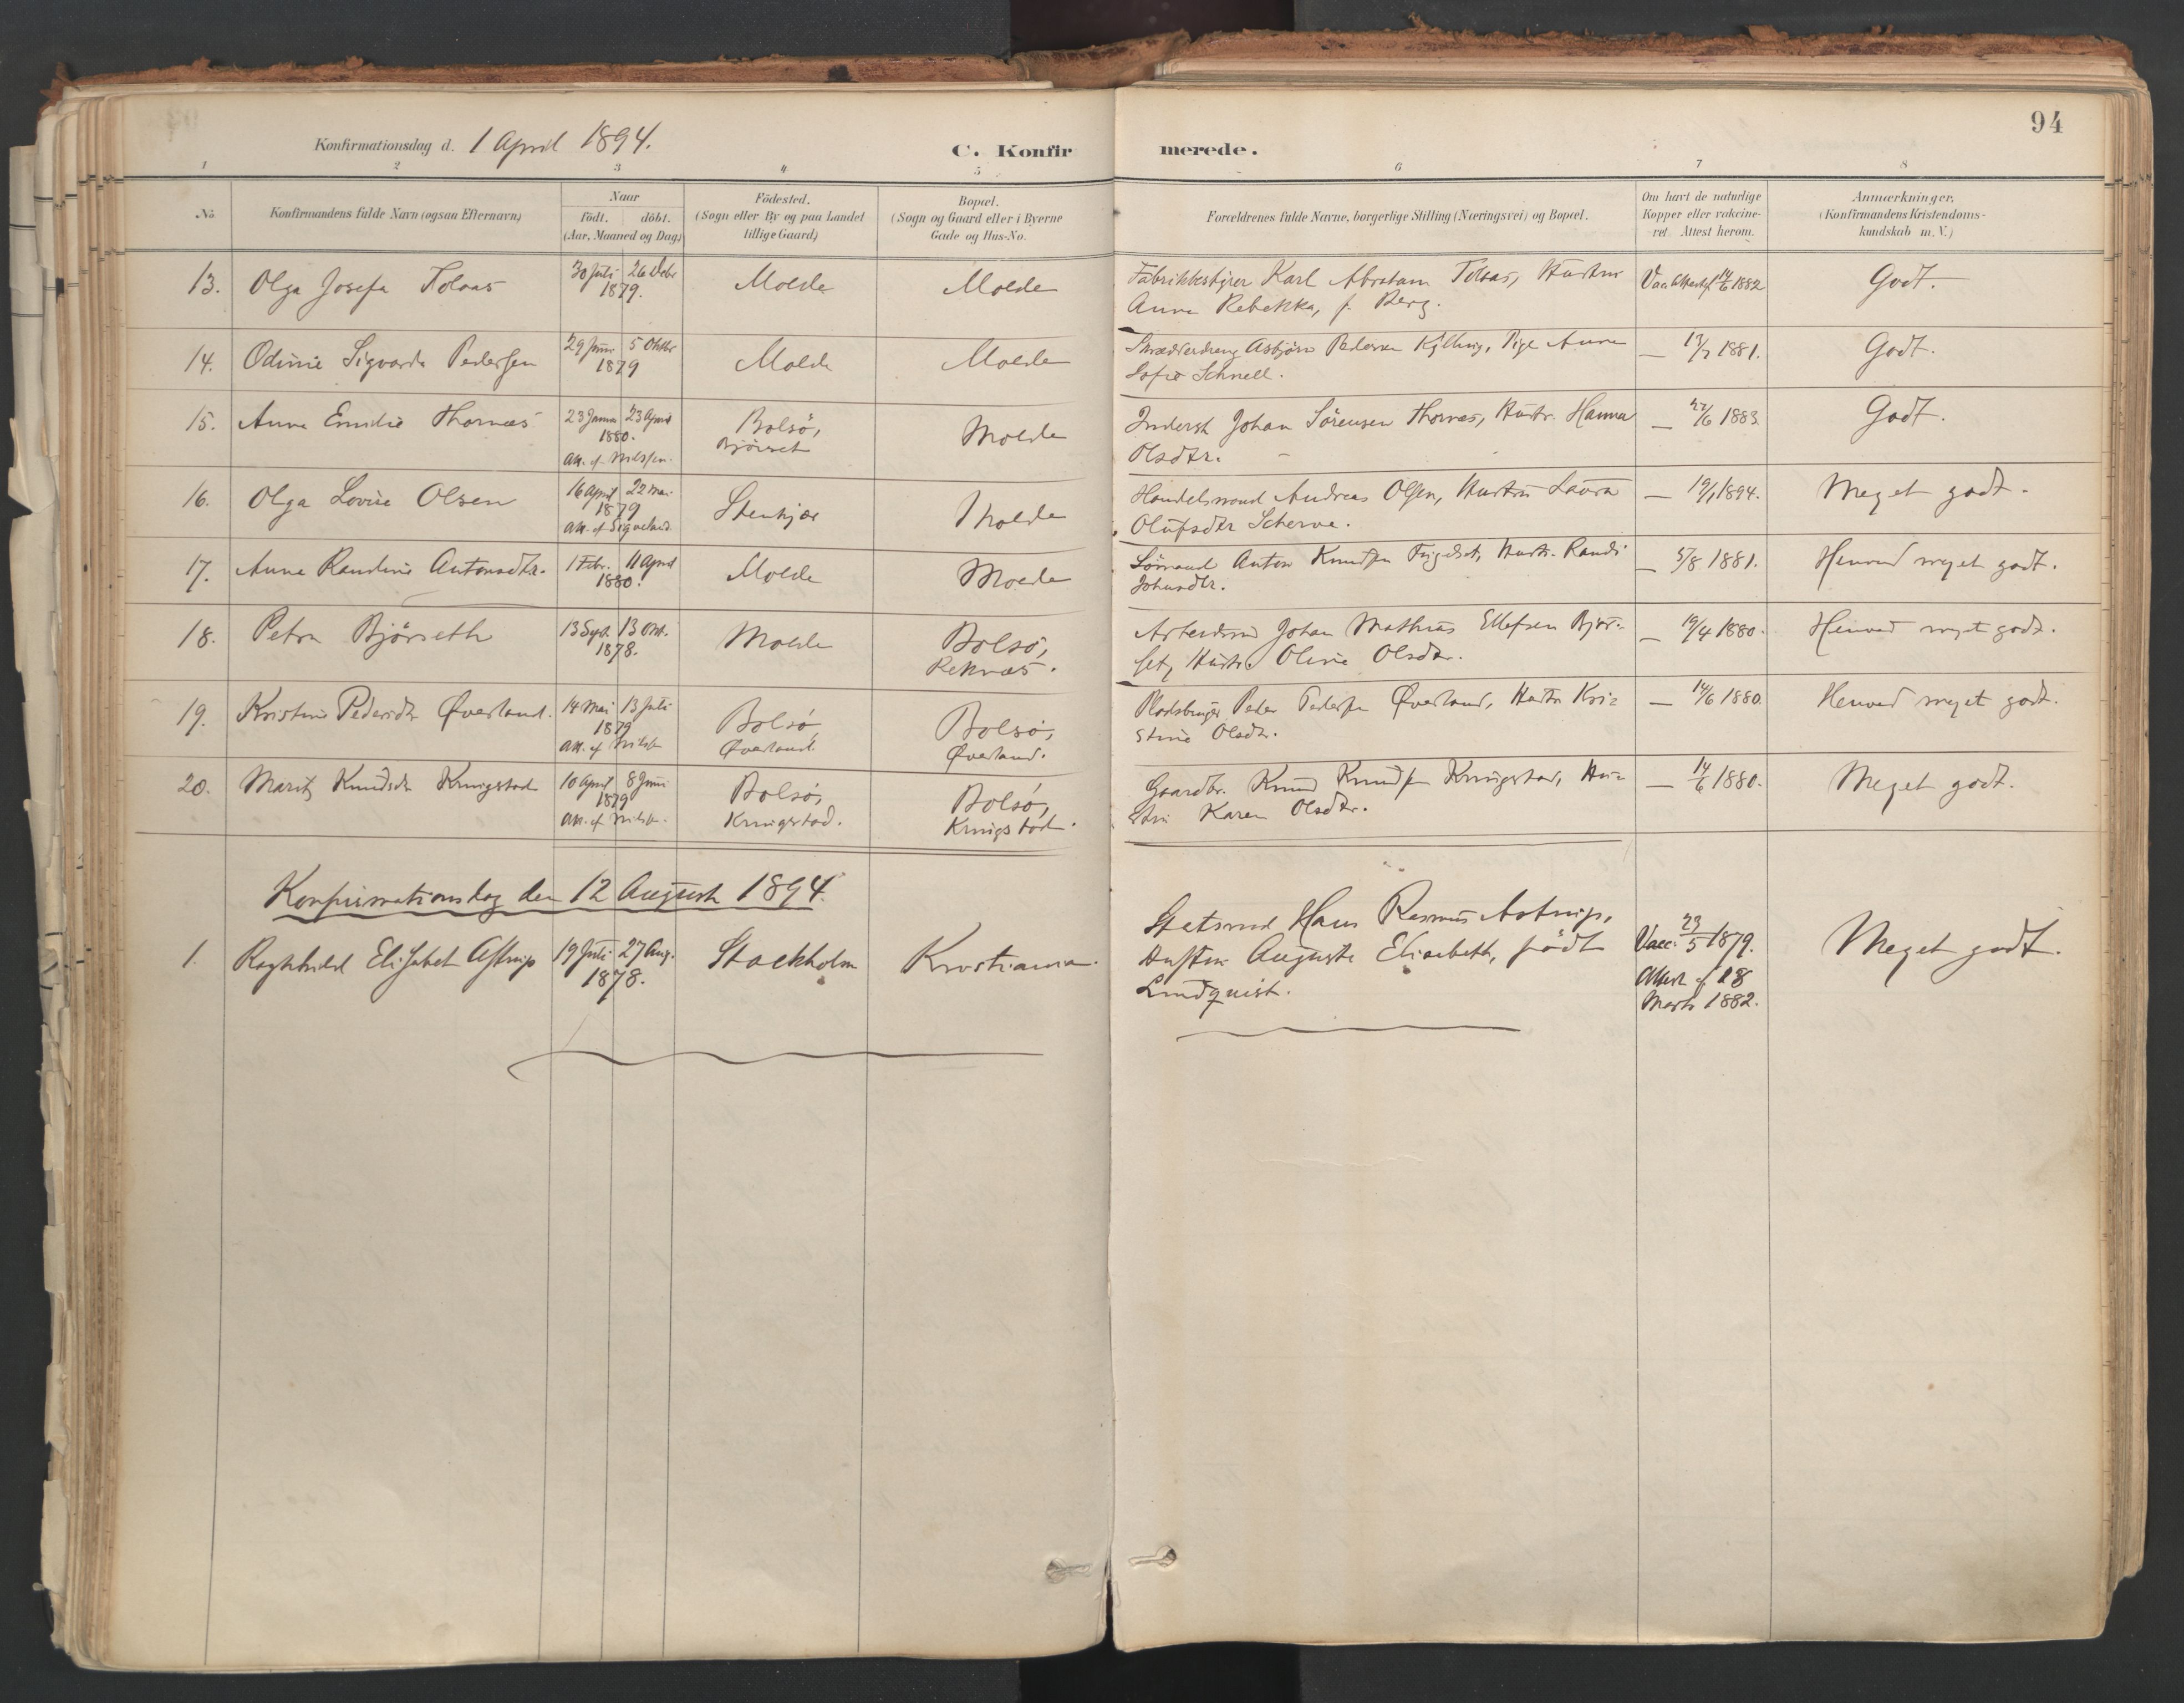 94
Konfirmationsdag d. 1 April 1894.
C. Konfirmerede.
1 2 3 4 5 6 7 8
No
Konfirmandens fulde Navn (ogsaa Efternavn)
Naar
födt. döbt.
(Aar, Maaned og Dag)
Födested.
(Sogn eller By og paa Landet
tillige Gaard)
Bopæl.
(Sogn og Gaard eller i Byerne
Gade og Hus-No.
Forældrenes fulde Navne, borgerlige Stilling (Næringsvei) og Bopæl.
Om havt de naturlige
Kopper eller vakcine-
ret Attest herom.
Anmærkninger,
(Konfirmandens Kristendoms-
kundskab m. V.)
13. Olga Josefa Tolaas 30 Juli 26 Debr 1879. Molde Molde
Fabrikbestyrer Karl Abraham Tolaas, Hustru
Anna Rebekka, f. Berg.
Vac. Attest af 14/6 1882 Godt.
14. Odine Sigvarda Pedersen 29 Juni 5 Oktbr 1879 Molde Molde
Asbjørn Pedersen Kylling, Pige Anna
Sofie Schnell.
— 13/7 1881. Godt.
15. Anna Emilie Thornæs 23 Januar 23 April 1880. Att. af Nilssen. Bolsö, Bjørset Molde
Inderst Johan Sörensen Thornæs, Hustr. Hanna
Olsdtr.
— 27/6 1883. Godt.
16. Olga Lovise Olsen 16 April 22 Mai 1879 Att. af Sigveland Stenkjær Molde
Handelsmand Andreas Olsen, Hustru Laura
Olufsdtr Scherve.
— 19/1 1894. Meget godt.
17. Anna Randine Antonsdtr. 1 Febr. 11 April 1880. Molde Molde
Sömand Anton Knudsen Fugelset, Hustr. Randi
Johnsdtr.
— 5/8 1881. Henved meget godt.
18. Petra Bjørseth 13 Sept. 13 Okt. 1878. Molde Bolsö, Reknæs.
Arbeidsm Johan Mathias Ellefsen Bjør-
set, Hustr. Oline Olsdtr.
— 19/4 1880. Henved meget godt.
19. Kristine Pedersdtr Øverland. 14 Mai 13 Juli 1879 Att. af Nilssen Bolsö Øverland. Bolsö, Øverland.
Pladsbruger Peder Pedersen Øverland, Hustru Kri-
stine Olsdtr.
— 14/6 1880. Henved meget godt.
20. Marit Knudsdtr Kringstad 10 April 8 Juni 1879 Att. af Nilssen. Bolsö, Kringstad. Bolsö, Kringstad.
Gaardbr. Knud Knudsen Kringstad, Hu-
stru Karen Olsdtr.
— 14/6 1880. Meget godt.
Konfirmationsdag den 12 August 1894.
1. Ragnhild Elisabet Astrup 19 Juli 27 Aug. 1878. Stockholm Kristiania.
Statsraad Hans Rasmus Astrup,
Hustru Augusta Elisabeth, född
Lindquist.
Vacc. 23/5 1879.
Attest af 18
Marts 1882.
Meget godt.